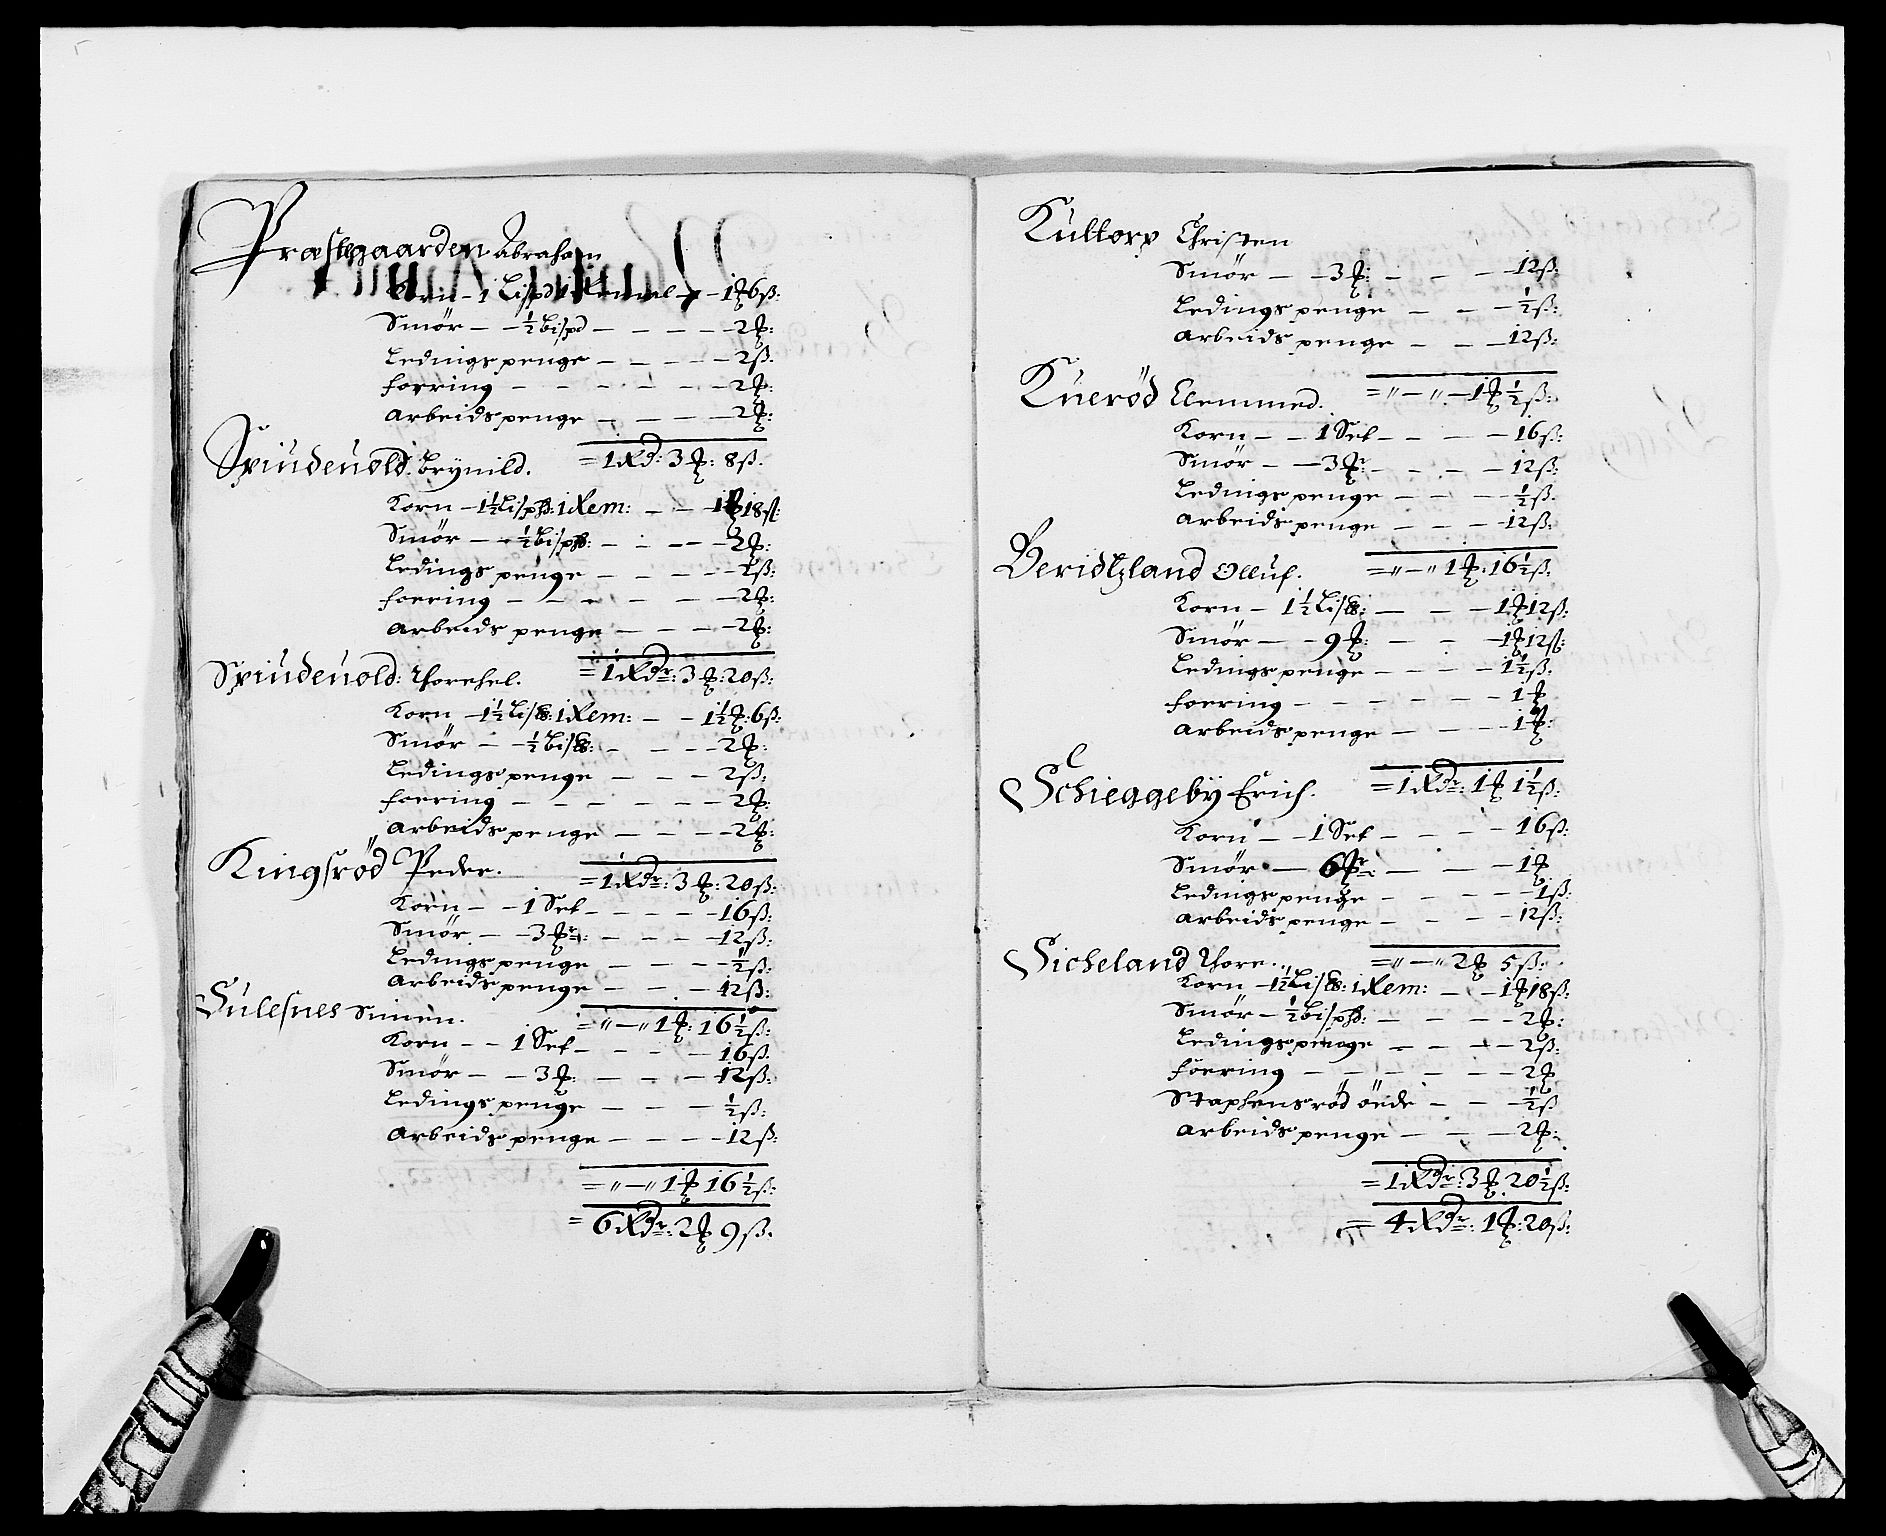 Præstegaarden Abraham
Korn - 1 Lispd 1 — 1 ꝳ 6 ß:
Smör — ½ Bispd — 2 ꝳ:
Ledings penge — 2 ß.
Foering — 2 ꝳ:
Arbeids penge — 2 ꝳ:
= 1 Rd: 3 ꝳ: 8 ß.
Spindeuold: Brynild.
Korn - 1½ Lispd: 1 Rem: — 1 ꝳ 18 ß:
Smör — ½ Bispd: — 2 ꝳ:
Ledings penge — 2 ß:
Foering — 2 ꝳ:
Arbeids penge — 2 ꝳ:
= 1 Rdr: 3 ꝳ: 20 ß:
Spindeuold: Thorchel.
Korn - 1½ Lispd: 1 Rem: — 1½ ꝳ: 6 ß:
Smör — ½ Bispd: — 2 ꝳ:
Ledings penge — 2 ß:
Foering — 2 ꝳ:
Arbeids penge — 2 ꝳ:
= 1 Rdr: 3 ꝳ: 20 ß:
Kingsröd Peder.
Korn — 1 Set — 16 ß:
Smör — 3 ꝳr: — 12 ß:
Ledings penge — ½ ß:
Arbeids penge — 12 ß:
= " — " 1 ꝳ: 16½ ß:
Sulesnes Simen.
Korn — 1 Set — 16 ß.
Smör — 3 ꝳ: — 12 ß:
Ledings penge — ½ ß:
Arbeids penge — 12 ß:
= " — " 1 ꝳ 16½ ß:
= 6 Rdr: 2 ꝳ 9 ß.
Kultorp Christen
Smör — 3 ꝳ: — 12 ß:
Ledings penge — ½ ß:
Arbeids penge — 12 ß:
= " — " — 1 ꝳ ½ ß:
Kneröd Clemmed.
Korn — 1 Set — 16 ß:
Smör — 3 ꝳr — 12 ß:
Ledings penge — ½ ß.
Arbeids penge — 12 ß:
= " — " 1 ꝳ: 16½ ß:
Beridtzland Olluf.
Korn — 1½ Lispd: — 1 ꝳ 12 ß:
Smör — 9 ꝳ: — 1 ꝳ 12 ß:
Ledings penge — 1½ ß:
Foering — 1 ꝳ
Arbeids penge — 1 ꝳ:
= 1 Rdr: 1 ꝳ 1½ ß:
Schieggeby Erich.
Korn — 1 Set — 16 ß:
Smör — 6 ꝳr: — 1 ꝳ
Ledings penge — 1 ß:
Arbeids penge — 12 ß:
= " — " 2 ꝳ 5 ß:
Sicheland Thore.
Korn - 1½ Lispd: 1 Rem: — 1 ꝳ 18 ß:
Smör — ½ Bispd: — 2 ꝳ:
Ledings penge — 2 ß:
Foering — 2 ꝳ
Staphensröd öede — ½ ß
Arbeids penge — 2 ꝳ:
= 1 Rdr: 3 ꝳ 20½ ß:
= 4 Rdr: 1 ꝳ: 20 ß: